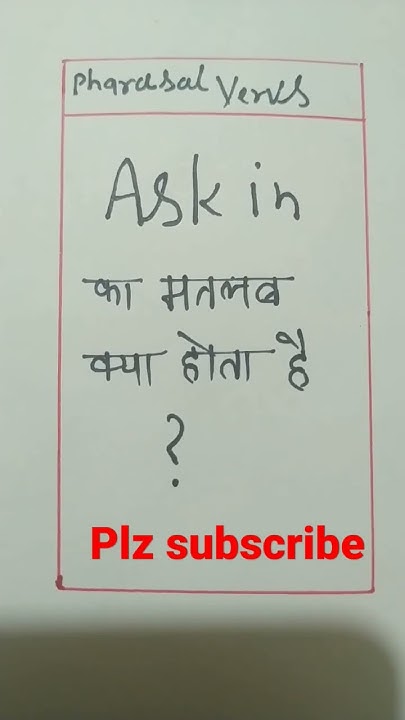 Pharasal Verbs
Ask in
का मतलब
क्या होता है
?
Plz subscribe